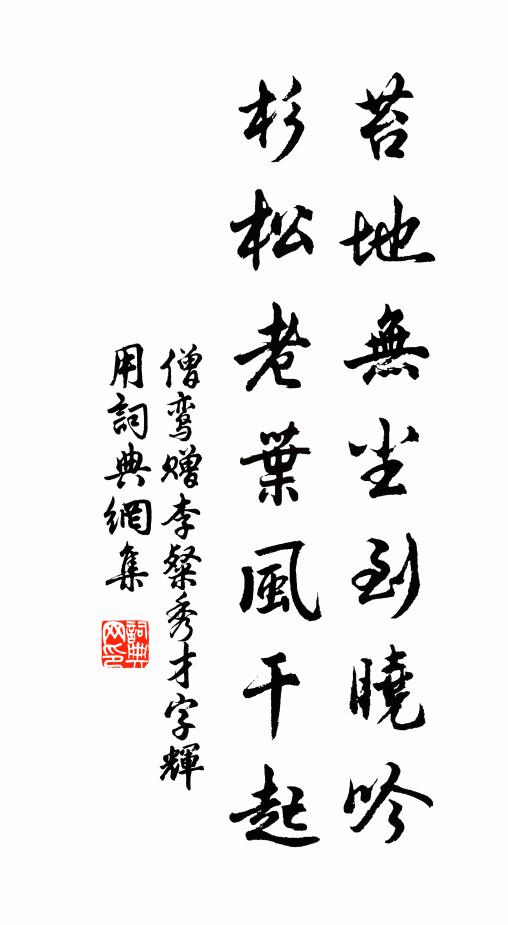 苔地無尘到曉吟
杉松老葉風干起
僧鸾赠李粲秀才字輝
用詞典網集
詞典网印